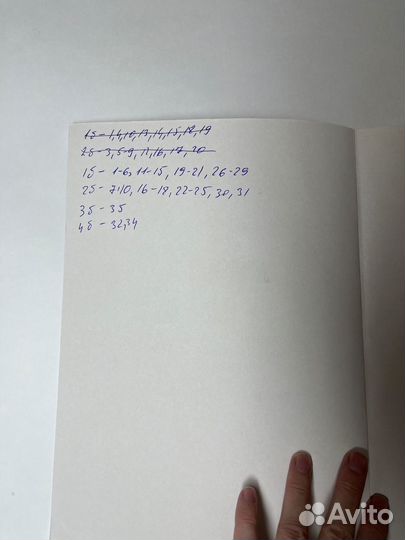 1б - 1,4,10,13,14,15,18,19
2б - 3,5-9,11,16,17,20
1б - 1-6, 11-15, 19-21, 26-29
2б - 7-10, 16-18, 22-25, 30, 31
3б - 35
4б - 32,34
Avito